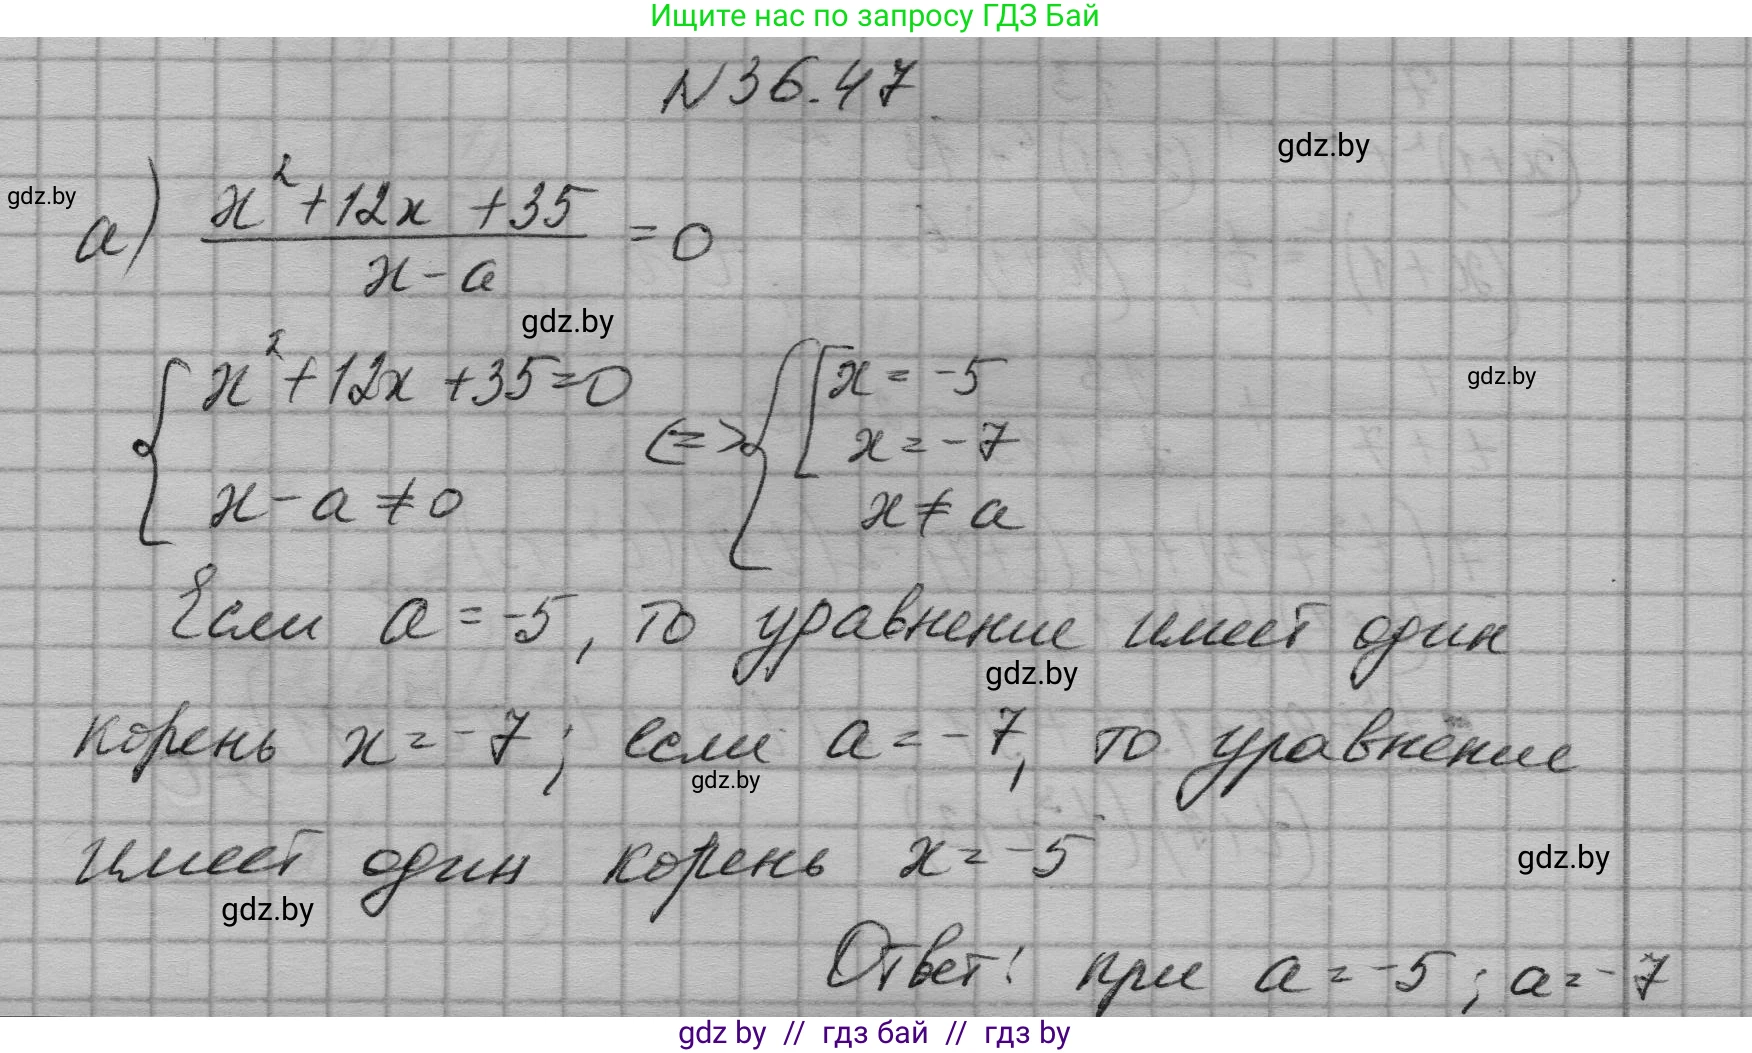 Ищите нас по запросу ГДЗ Бай
N36.47
gdz.by
gdz.by
а) x²+12x+35 / x-a = 0
gdz.by
{ x²+12x+35=0 <=> { [ x=-5
gdz.by
x=-7
x-a≠0 x≠a
Если a=-5, то уравнение имеет один
gdz.by
корень x=-7; если a=-7, то уравнение
gdz.by
имеет один корень x=-5
gdz.by
gdz.by
Ответ: при a=-5; a=-7
gdz by // гдз бай // гдз by